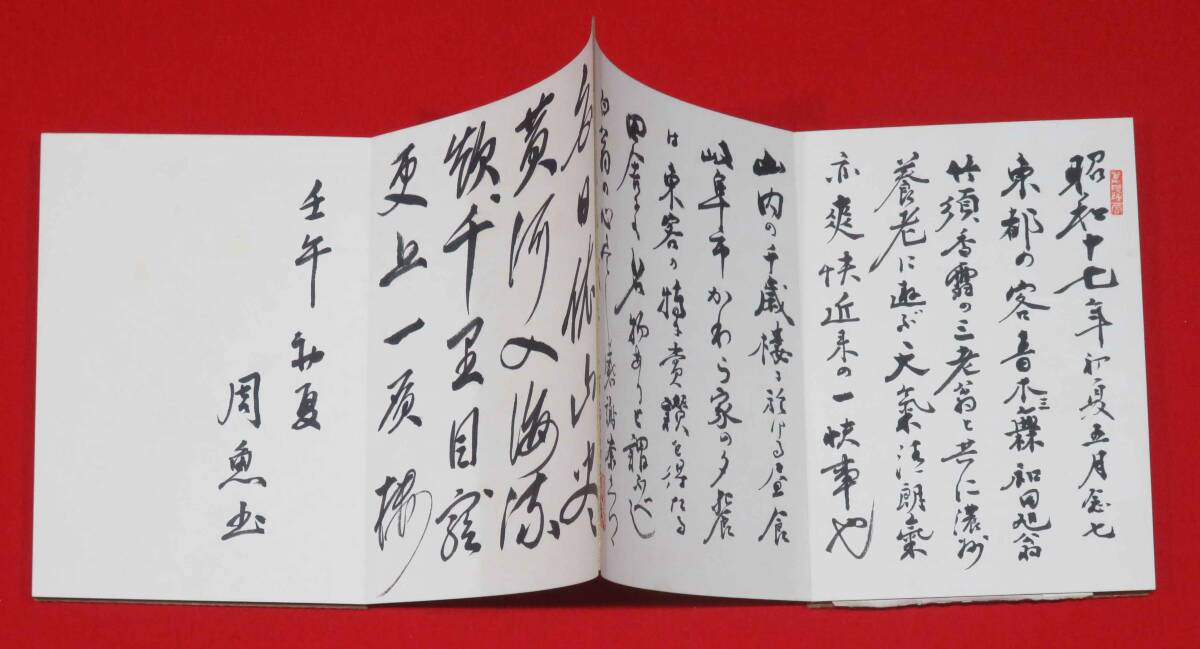 昭和十七年初夏五月念七
東都の客青木三舞和田旭翁
竹須香霞の三老翁と共に濃州
養老に遊ぶ天氣清朗氣
亦爽快近来の一快事也
山内の千歳楼に於ける昼食
岐阜市かわら家の夕餐
は東客の特に賞讃を得たる
田舎にも名物ありと謂ふべし
白翁の心
白日依山盡
黄河入海流
欲千里目窮
更上一層楼
壬午初夏
周魚書